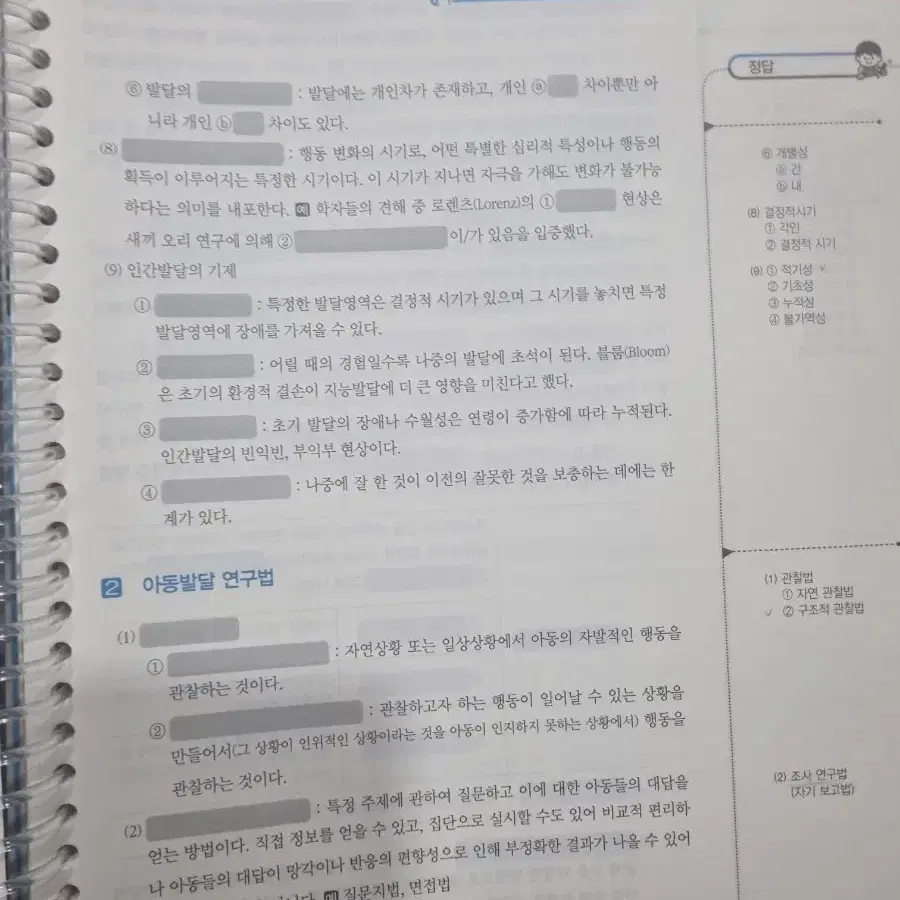 ⑥ 발달의 : 발달에는 개인차가 존재하고, 개인 ⓐ 차이뿐만 아
니라 개인 ⓑ 차이도 있다.
(8) : 행동 변화의 시기로, 어떤 특별한 심리적 특성이나 행동의
획득이 이루어지는 특정한 시기이다. 이 시기가 지나면 자극을 가해도 변화가 불가능
하다는 의미를 내포한다. 예 학자들의 견해 중 로렌츠(Lorenz)의 ① 현상은
새끼 오리 연구에 의해 ② 이/가 있음을 입증했다.
(9) 인간발달의 기제
① : 특정한 발달영역은 결정적 시기가 있으며 그 시기를 놓치면 특정
발달영역에 장애를 가져올 수 있다.
② : 어릴 때의 경험일수록 나중의 발달에 초석이 된다. 블룸(Bloom)
은 초기의 환경적 결손이 지능발달에 더 큰 영향을 미친다고 했다.
③ : 초기 발달의 장애나 수월성은 연령이 증가함에 따라 누적된다.
인간발달의 빈익빈, 부익부 현상이다.
④ : 나중에 잘 한 것이 이전의 잘못한 것을 보충하는 데에는 한
계가 있다.
2 아동발달 연구법
(1)
① : 자연상황 또는 일상상황에서 아동의 자발적인 행동을
관찰하는 것이다.
② : 관찰하고자 하는 행동이 일어날 수 있는 상황을
만들어서(그 상황이 인위적인 상황이라는 것을 아동이 인지하지 못하는 상황에서) 행동을
관찰하는 것이다.
(2) : 특정 주제에 관하여 질문하고 이에 대한 아동들의 대답을
얻는 방법이다. 직접 정보를 얻을 수 있고, 집단으로 실시할 수도 있어 비교적 편리하
나 아동들의 대답이 망각이나 반응의 편향성으로 인해 부정확한 결과가 나올 수 있어
예 질문지법, 면접법
정답
⑥ 개별성
ⓐ 간
ⓑ 내
(8) 결정적시기
① 각인
② 결정적 시기
(9) ① 적기성 ✓
② 기초성
③ 누적성
④ 불가역성
(1) 관찰법
① 자연 관찰법
✓ ② 구조적 관찰법
(2) 조사 연구법
(자기 보고법)